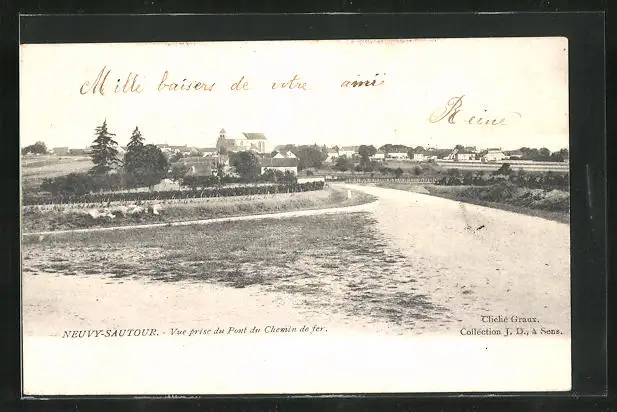 Mille baisers de votre amie
Reine
NEUVY-SAUTOUR. - Vue prise du Pont du Chemin de fer.
Cliché Graux.
Collection J. D., à Sens.